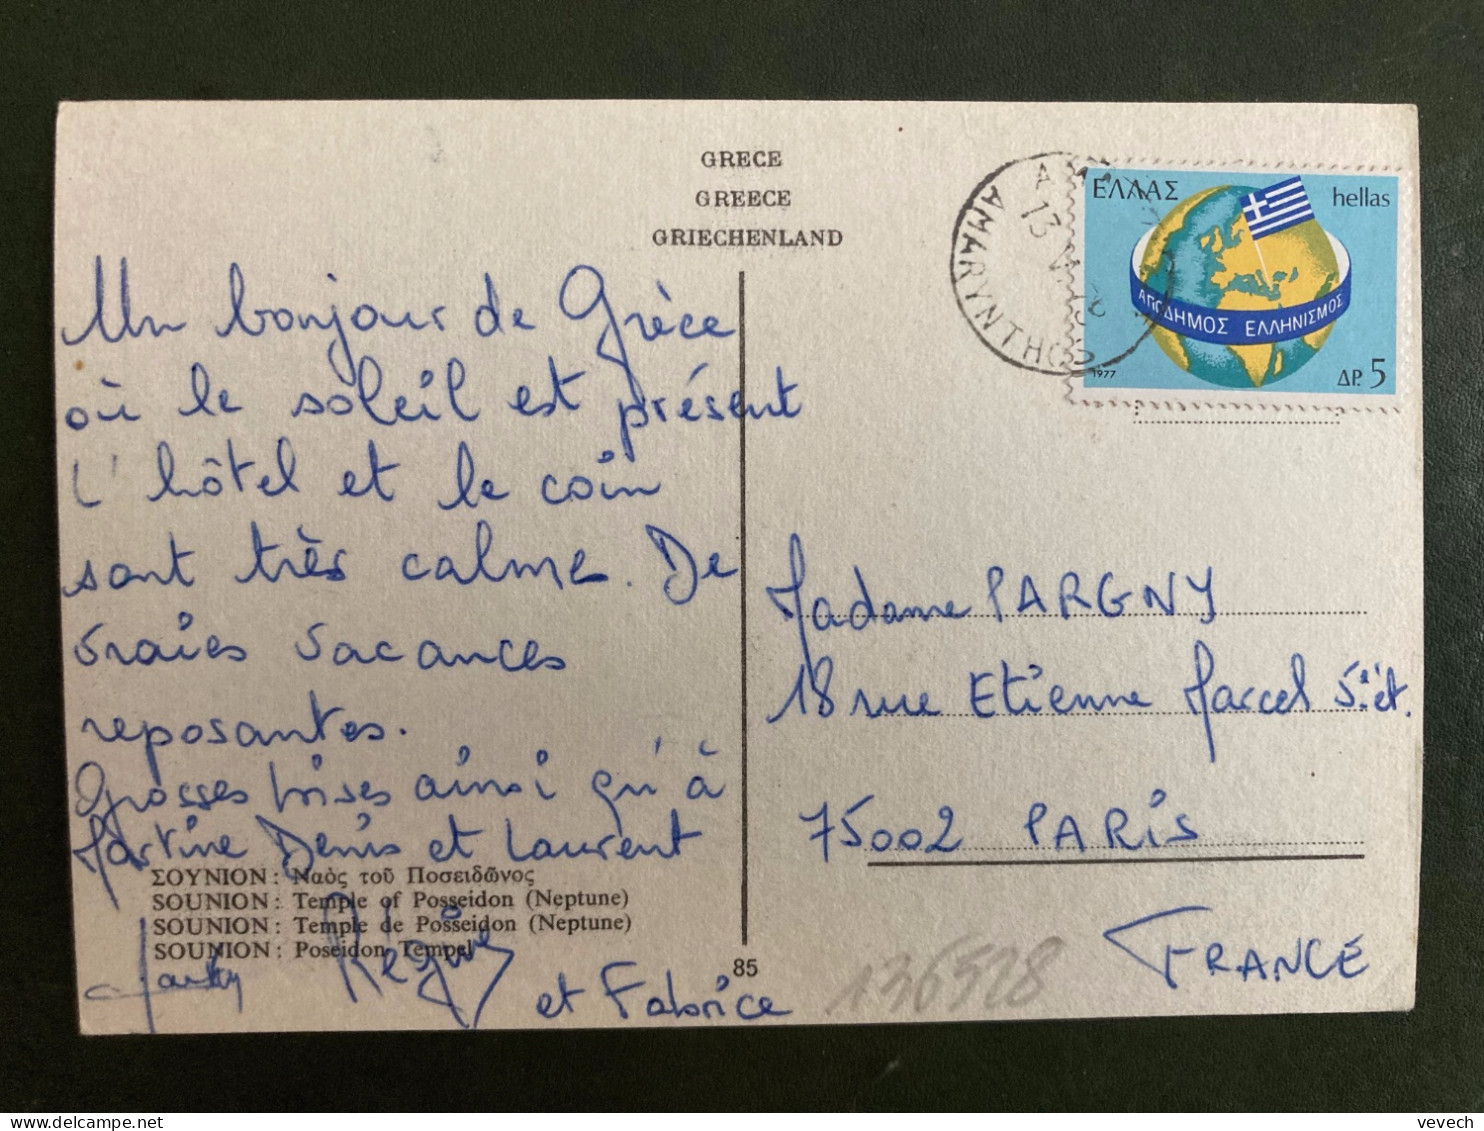 GRECE
GREECE
GRIECHENLAND
Un bonjour de Grèce
où le soleil est présent
L'hôtel et le coin
sont très calme. De
vraies vacances
reposantes.
Grosses bises ainsi qu'à
Martine Denis et Laurent
Jacky Régine
et Fabrice
ΣΟΥΝΙΟΝ: Ναὸς τοῦ Ποσειδῶνος
SOUNION: Temple of Posseidon (Neptune)
SOUNION: Temple de Posseidon (Neptune)
SOUNION: Poseidon Tempel
85
AMARYNTHOS
13
ΕΛΛΑΣ hellas
ΑΠΟΔΗΜΟΣ ΕΛΛΗΝΙΣΜΟΣ
1977 ΔΡ. 5
Madame PARGNY
18 rue Etienne Marcel 5.ét.
75002 PARIS
FRANCE
136528
vevech